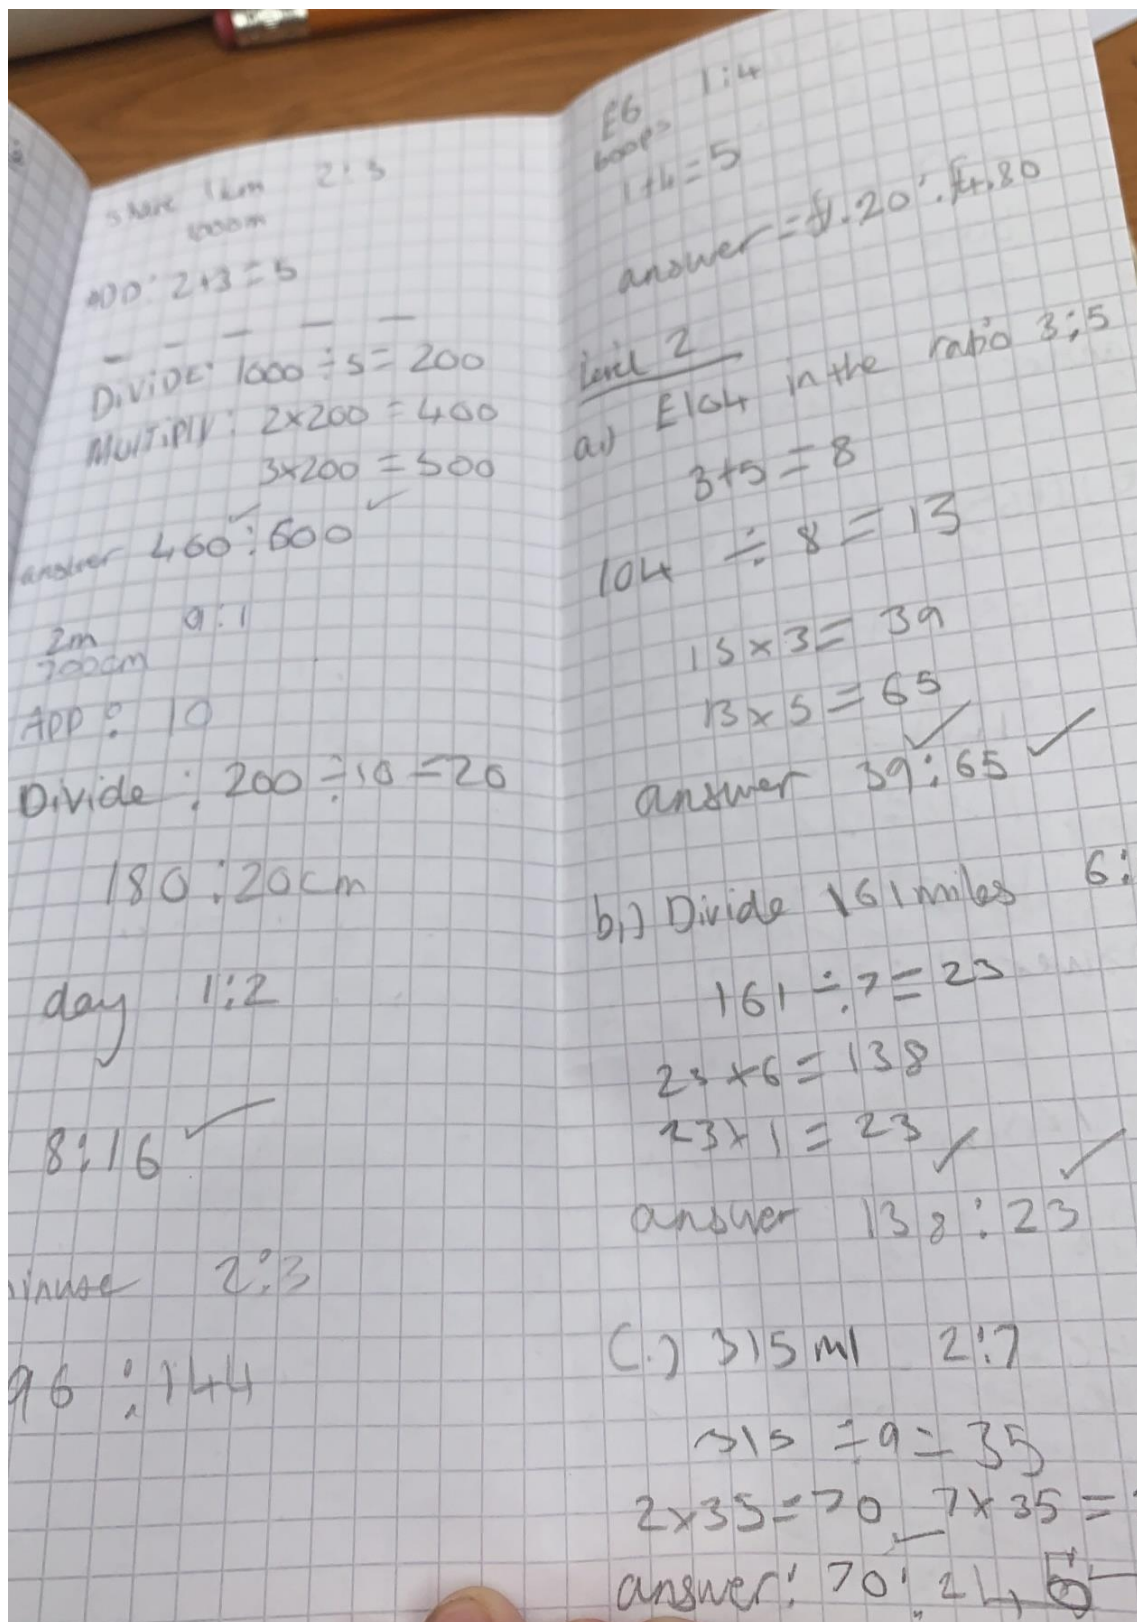 share 1km 2:3
1000m
ADD: 2+3=5
DIVIDE: 1000÷5=200
MULTIPLY: 2×200=400
3×200=500
answer 460:600
2m 9:1
200cm
ADD: 10
Divide: 200÷10=20
180:20cm
day 1:2
8:16
2:3
96:144
£6 1:4
1+4=5
answer=£1.20:£4.80
Level 2
a.) £104 in the ratio 3:5
3+5=8
104 ÷ 8=13
13×3=39
13×5=65
answer 39:65
b.) Divide 161 miles 6:
161÷7=23
23×6=138
23×1=23
answer 138:23
C.) 315 ml 2:7
315 ÷9=35
2×35=70 7×35=
answer: 70:245